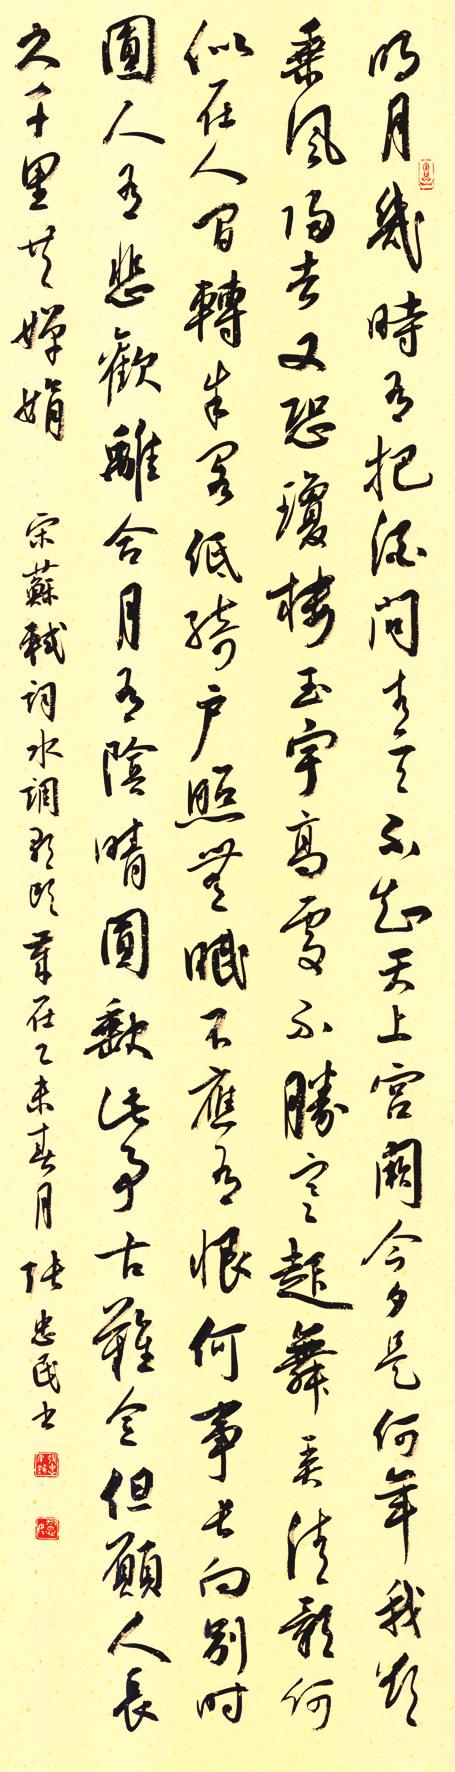 明月幾時有把酒問青天不知天上宮闕今夕是何年我欲
乘風歸去又恐瓊樓玉宇高處不勝寒起舞弄清影何
似在人間轉朱閣低綺戶照無眠不應有恨何事長向別時
圓人有悲歡離合月有陰晴圓缺此事古難全但願人長
久千里共嬋娟 宋蘇軾詞水調歌頭歲在乙未春月 張忠民書